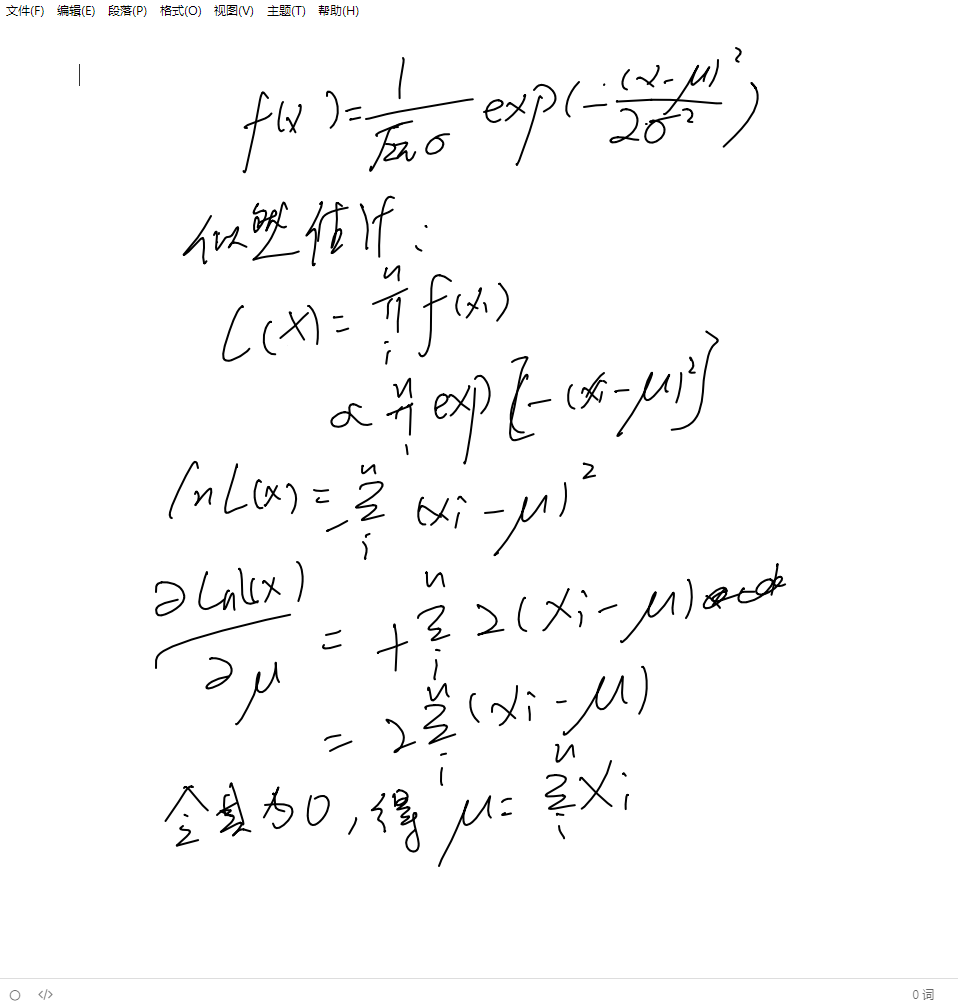 文件(F) 编辑(E) 段落(P) 格式(O) 视图(V) 主题(T) 帮助(H)
f(x)=\frac{1}{\sqrt{2π}σ} exp(-\frac{(x-μ)^2}{2σ^2})
似然估计:
L(X)=\prod_i^n f(x_i)
∝ \prod_i^n exp[-(x_i-μ)^2]
lnL(x)=-\sum_i^n (x_i-μ)^2
\frac{∂LnL(x)}{∂μ} = +\sum_i^n 2(x_i-μ)
= 2\sum_i^n (x_i-μ)
令其为0,得 μ=\sum_i^n x_i
</> 0 词